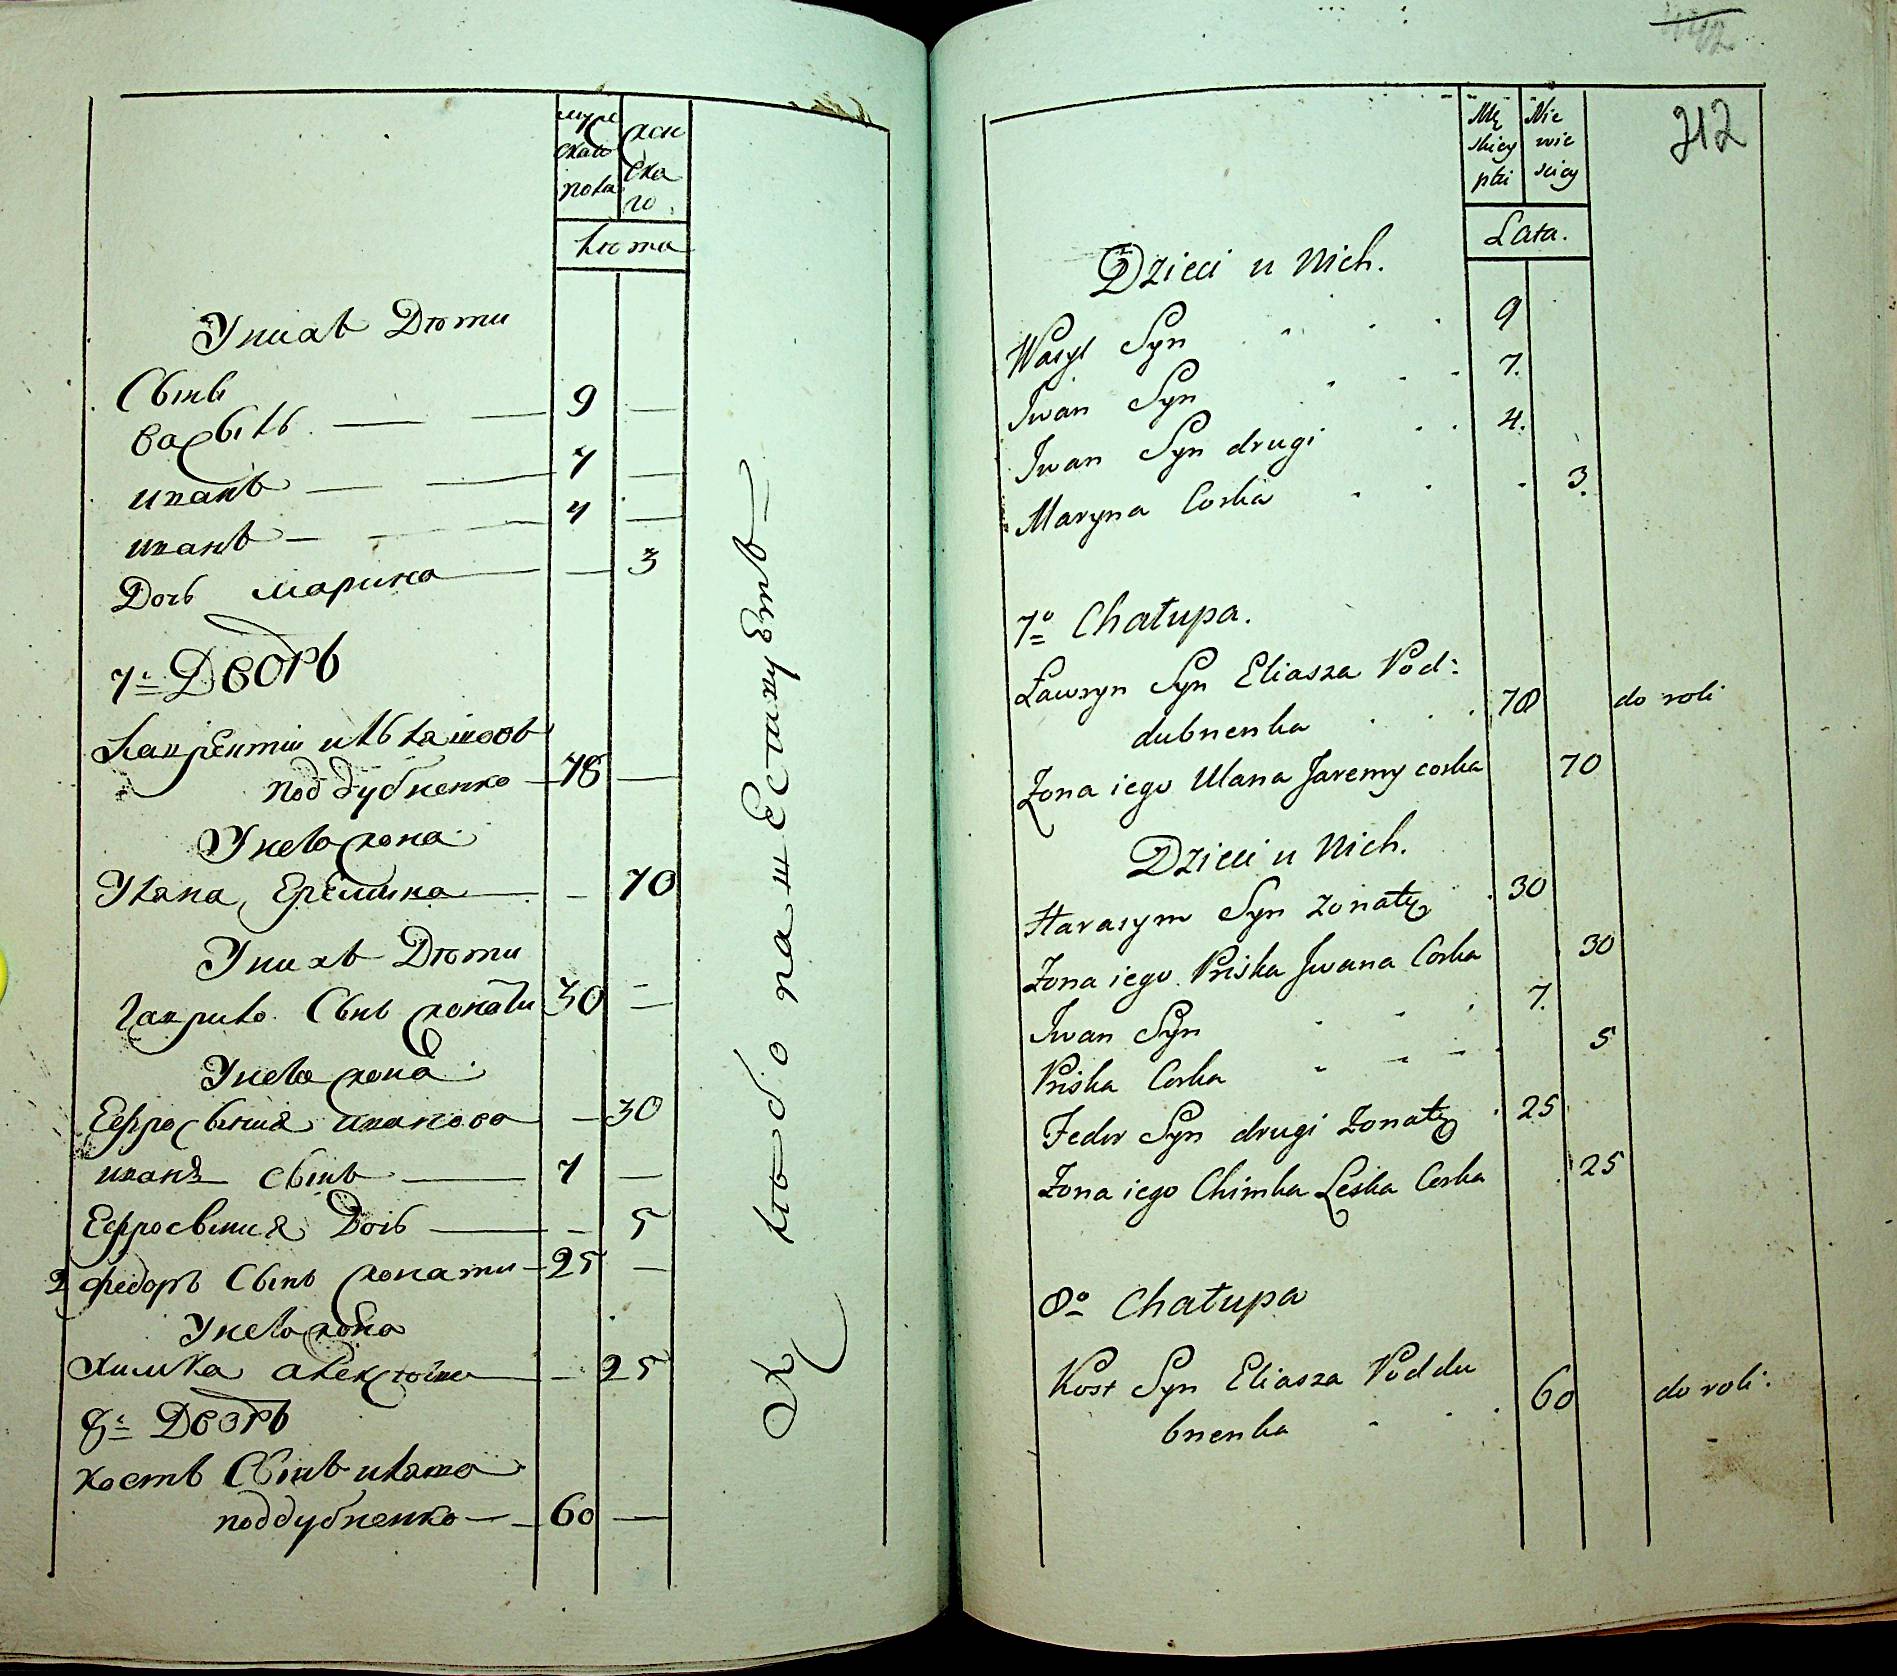 мужс
скаго
пола
жен
ска
го
лѣта
У нихъ Дѣти
Сынъ
Василь 9
иванъ 7
иванъ 4
Дочь марина 3
7й Дворъ
Лаврентій ильяшовъ
поддубненко 78
У него жона
Уляна Еремина 70
У нихъ Дѣти
Гаврило Сынъ жонати 30
У него жона
Ефросынія иванова 30
иванъ сынъ 7
Ефросынія Дочь 5
2 федоръ Сынъ жонати 25
У него жона
химка алексѣева 25
8й Дворъ
костъ Сынъ иляша
поддубненко 60
хлѣбопашествуетъ
212
Mę
skiey
płci
Nie
wie
sciey
Lata.
Dzieci u Nich.
Wasyl Syn 9
Iwan Syn 7.
Iwan Syn drugi 4.
Maryna Corka 3.
7o Chałupa.
Ławryn Syn Eliasza Pod:
dubnenka 78 do roli
Zona iego Ulana Jaremy corka 70
Dzieci u Nich.
Harasym Syn zonaty 30
Zona iego Priska Iwana Corka 30
Iwan Syn 7.
Priska Corka 5
Fedor Syn drugi Zonaty 25
Zona iego Chimka Leska Corka 25
8o Chałupa
Kost Syn Eliasza Poddu
bnenka 60 do roli.